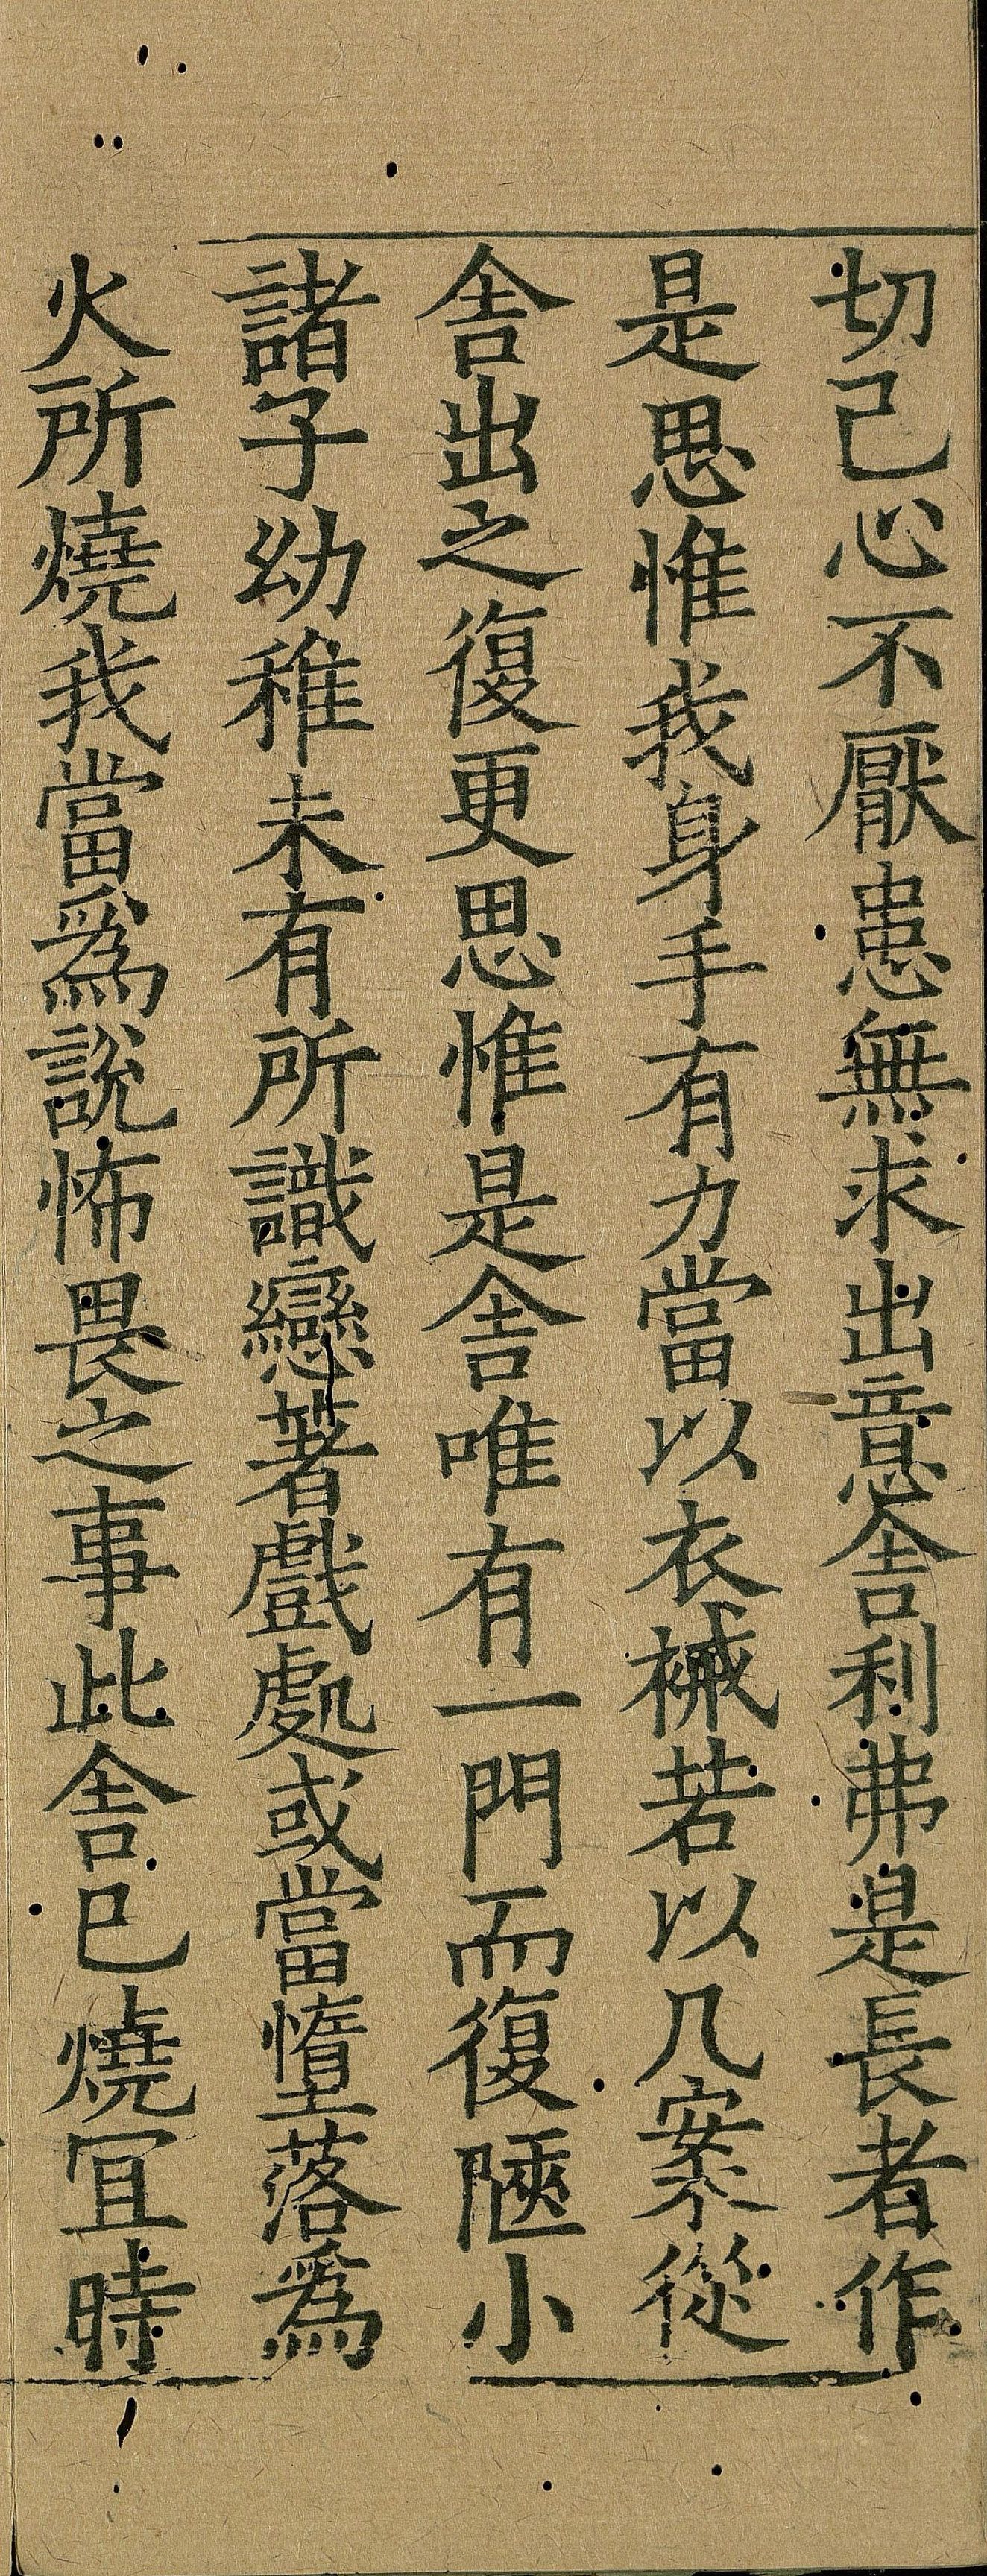 切己心不厭患無求出意舎利弗是長者作
是思惟我身手有力當以衣裓若以几案從
舎出之復更思惟是舎唯有一門而復陿小
諸子幼稚未有所識戀著戲處或當墮落爲
火所燒我當爲說怖畏之事此舎已燒冝時